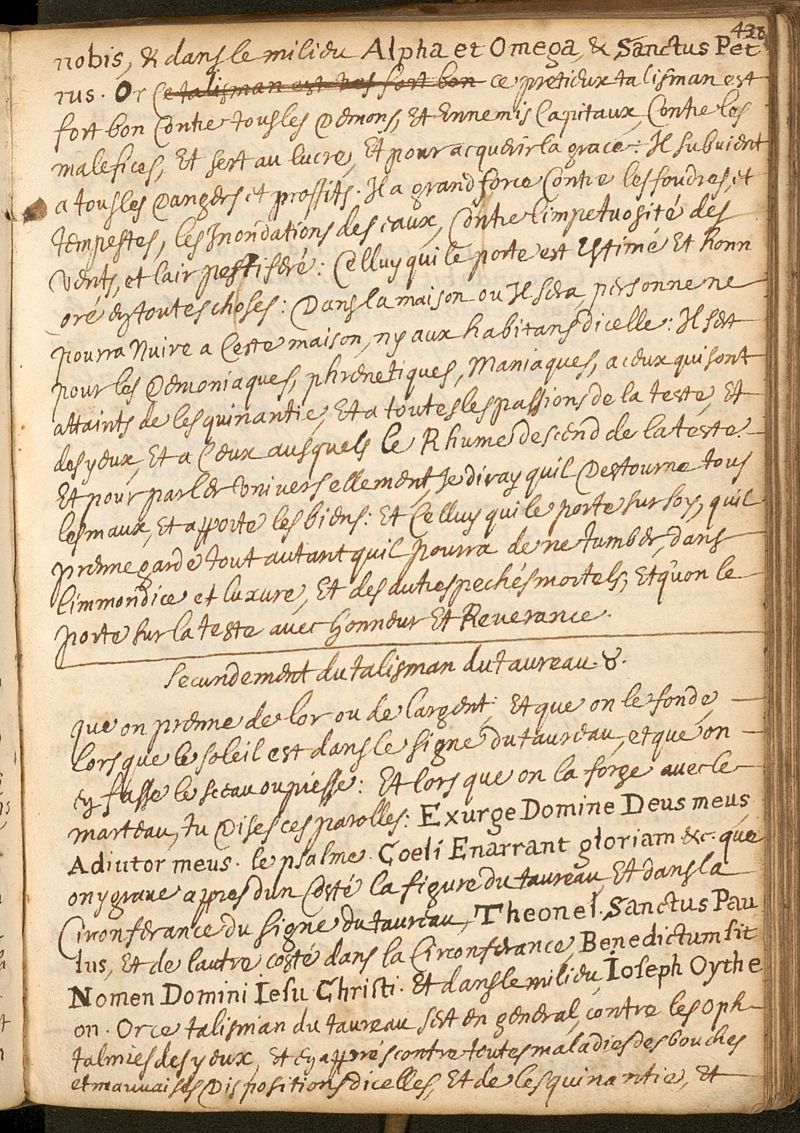 428
nobis, & dans le milieu Alpha et Omega, & Sanctus Pet
rus. Or Ce talisman est tres fort bon ce pretieux talisman est
fort bon Contre tous les Demons, Et Ennemis Capitaux, Contre les
malefices, Et sert au lucre, Et pour acquerir la grace: Il subvient
a tous les Dangers et proffits. Il a grand force Contre les foudres, et
tempestes, les Inondations des eaux, Contre l'impetuosité des
Vents, et lair pestiferé: Celluy qui le porte est Estimé Et honn
oré en toutes choses: Dans la maison ou Il sera, personne ne
pourra Nuire a Ceste maison, ny aux habitans dicelle: Il sert
pour les Demoniaques, phrenetiques, Maniaques, a ceux qui sont
attaints de lesquinantie, Et a toutes les passions de la teste, Et
des yeux, Et a Ceux ausquels le Rhume descend de la teste.
Et pour parler Universellement, Je diray quil Destourne tous
les maux, Et apporte les biens: Et Celluy qui le porte sur soy, quil
prenne garde tout autant quil pourra de ne tumber, dans
l'immondice et luxure, Et des autres pechés mortels, Et quon le
porte sur la teste avec honneur Et Reverance.
Secundement du talisman du taureau ♉.
que on prenne de lor ou de largent: Et que on le fonde,
lorsque le soleil est dans le signe du taureau, et que on
en fasse le sceau ou piesse: Et lors que on la forge avec le
marteau, tu Dises ces parolles: Exurge Domine Deus meus,
Adiutor meus. le psalme. Coeli Enarrant gloriam &c. que
on y grave appres dun Costé la figure du taureau, Et dans la
Circonferance du signe du taureau, Theonel. Sanctus Pau
lus, Et de lautre costé dans la Circonferance, Benedictum sit
Nomen Domini Iesu Christi. Et dans le milieu, Ioseph Oythe
on. Or ce talisman du taureau sert en general contre les oph
talmies des yeux, et en apprés contre toutes maladies des bouches
et mauvaises Dispositions dicelles, Et de lesquinantie, Et